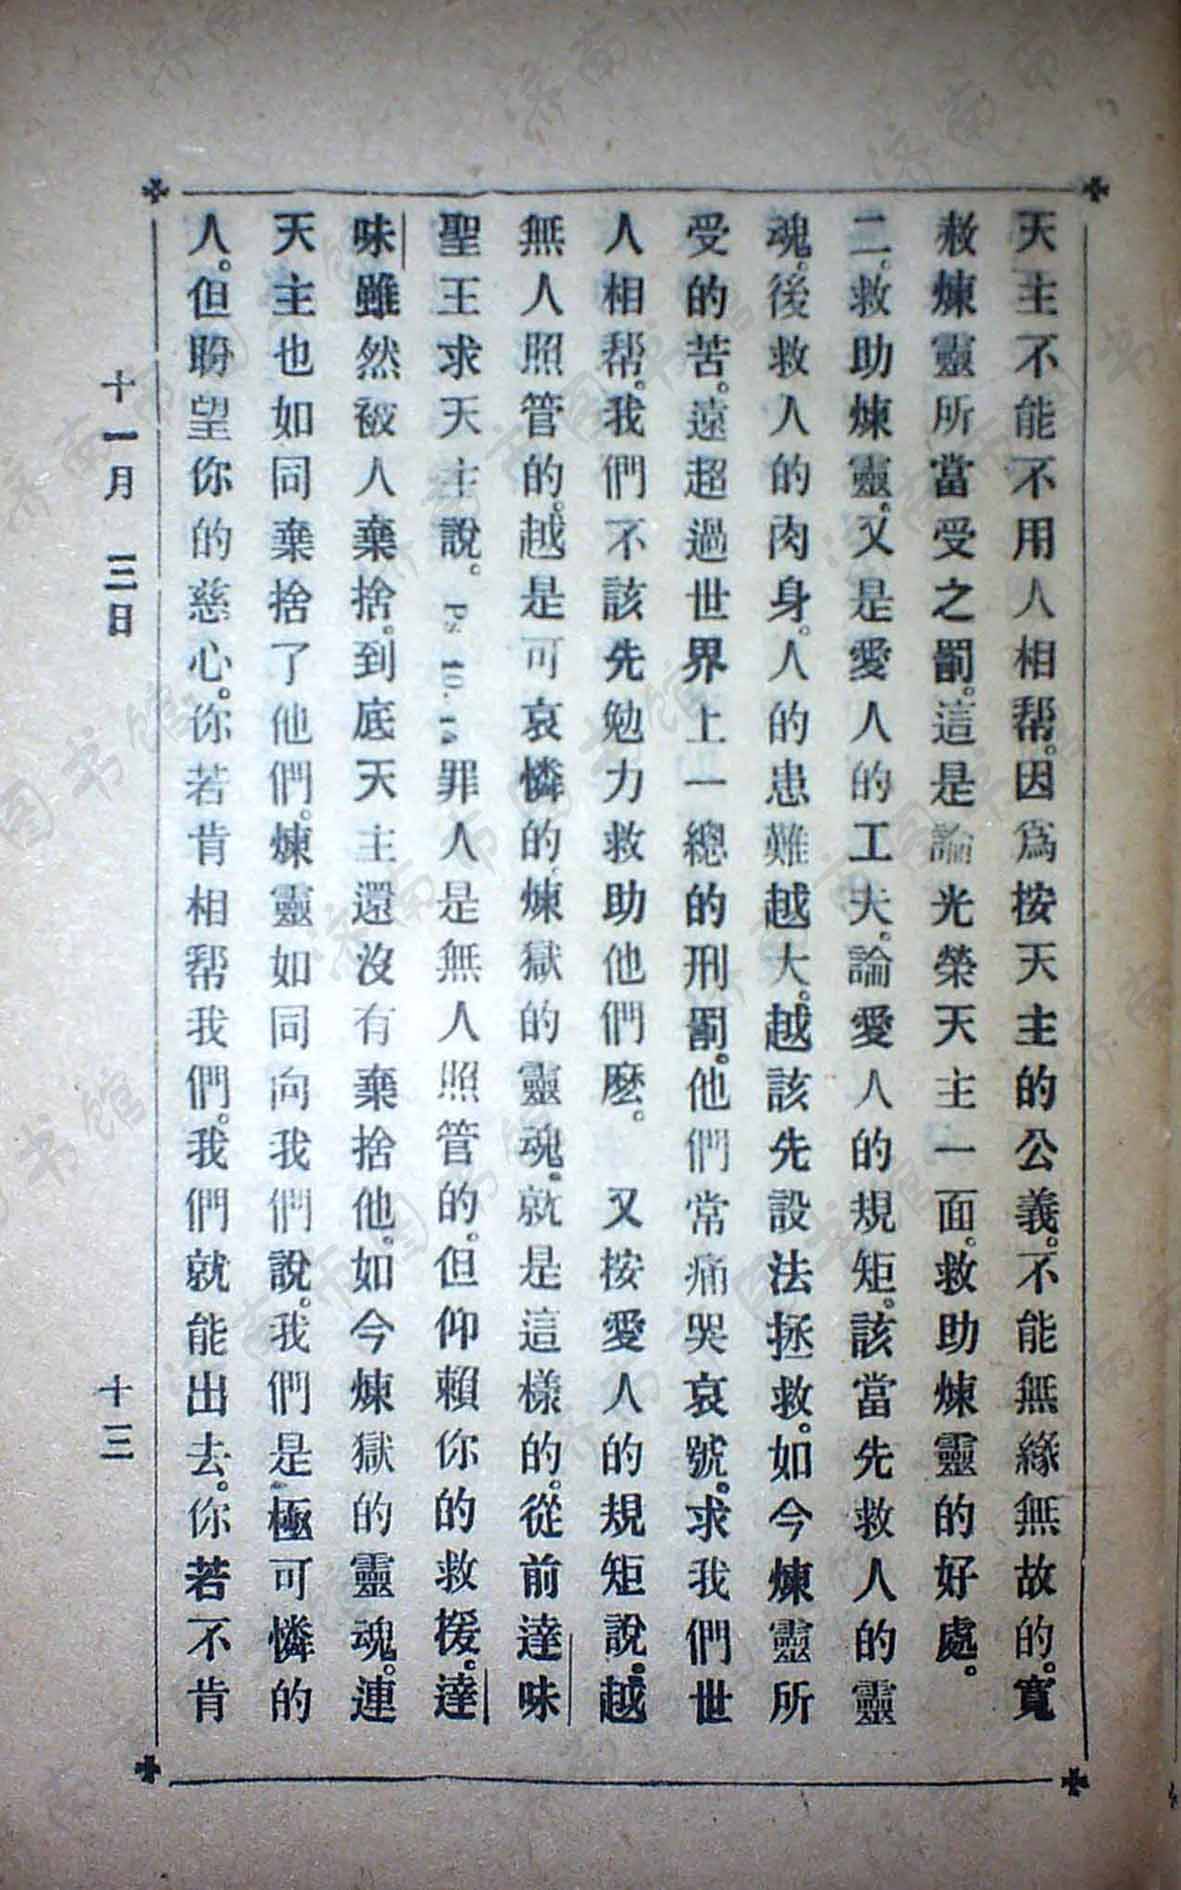 天主不能不用人相帮。因爲按天主的公義。不能無緣無故的。寬
赦煉靈所當受之罰。這是論光榮天主一面。救助煉靈的好處。
二。救助煉靈。又是愛人的工夫。論愛人的規矩。該當先救人的靈
魂。後救人的肉身。人的患難越大。越該先設法拯救。如今煉靈所
受的苦。遠超過世界上一總的刑罰。他們常痛哭哀號。求我們世
人相帮。我們不該先勉力救助他們麼。 又按愛人的規矩說。越
無人照管的。越是可哀憐的。煉獄的靈魂。就是這樣的。從前達味
聖王求天主說。Ps 10. 14 罪人是無人照管的。但仰賴你的救援。達
味雖然被人棄捨。到底天主還沒有棄捨他。如今煉獄的靈魂。連
天主也如同棄捨了他們。煉靈如同向我們說。我們是極可憐的
人。但盼望你的慈心。你若肯相帮我們。我們就能出去。你若不肯
十一月 三日 十三
济南市图书馆